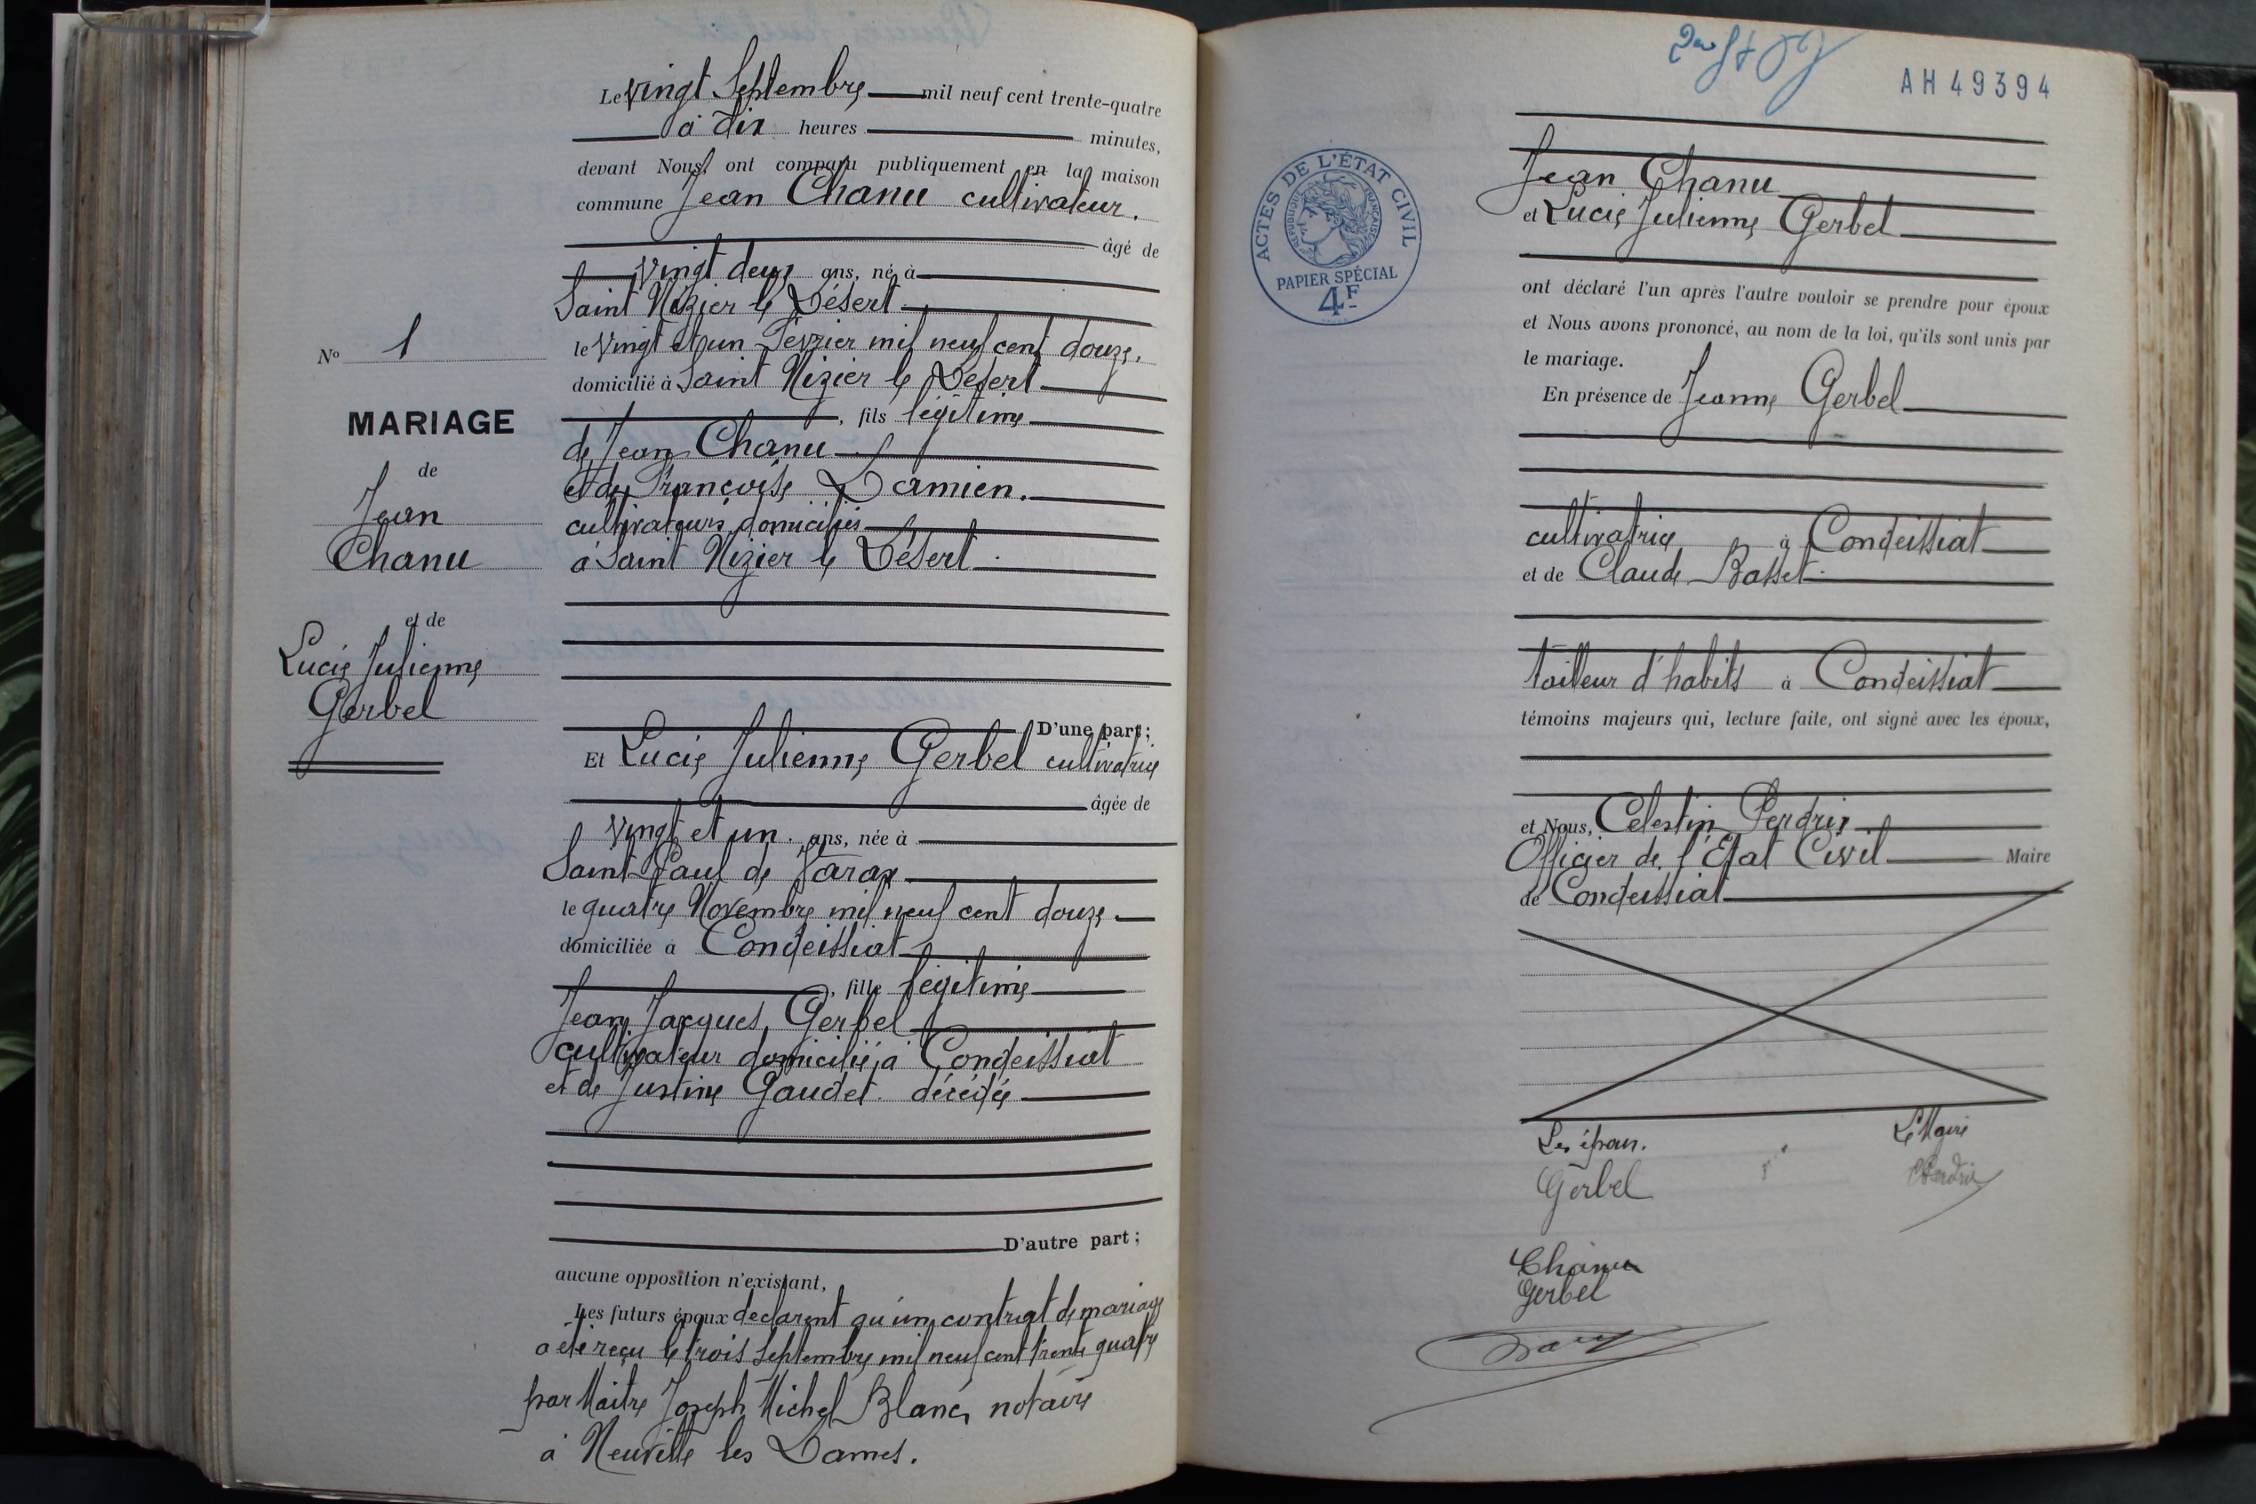 Le vingt Septembre mil neuf cent trente-quatre
à dix heures minutes,
devant Nous, ont comparu publiquement en la maison
commune Jean Chanu cultivateur.
âgé de
vingt deux ans, né à
Saint Nizier le Désert
le vingt et un Février mil neuf cent douze.
domicilié à Saint Nizier le Désert
, fils légitime
de Jean Chanu
et de Françoise Damien.
cultivateurs domiciliés
à Saint Nizier le Désert.
D'une part;
Et Lucie Julienne Gerbel cultivatrice
âgée de
vingt et un ans, née à
Saint Paul de Varax
le quatre Novembre mil neuf cent douze
domiciliée à Condeissiat
, fille légitime
Jean Jacques Gerbel
cultivateur domicilié à Condeissiat
et de Justine Gaudet décédée
D'autre part;
aucune opposition n'existant,
Les futurs époux déclarent qu'un contrat de mariage
a été reçu le trois Septembre mil neuf cent trente quatre
par Maitre Joseph Michel Blanc, notaire
à Neuville les Dames.
No 1
MARIAGE
de
Jean
Chanu
et de
Lucie Julienne
Gerbel
AH 49394
ACTES DE L'ÉTAT CIVIL
RÉPUBLIQUE FRANÇAISE
PAPIER SPÉCIAL
4F
Jean Chanu
et Lucie Julienne Gerbel
ont déclaré l'un après l'autre vouloir se prendre pour époux
et Nous avons prononcé, au nom de la loi, qu'ils sont unis par
le mariage.
En présence de Jeanne Gerbel
cultivatrice à Condeissiat
et de Claude Basset
tailleur d'habits à Condeissiat
témoins majeurs qui, lecture faite, ont signé avec les époux,
et Nous, Célestin Perdrix
Officier de l'État Civil Maire
de Condeissiat
Les époux. Le Maire
Gerbel CPerdrix
Chanu
Gerbel